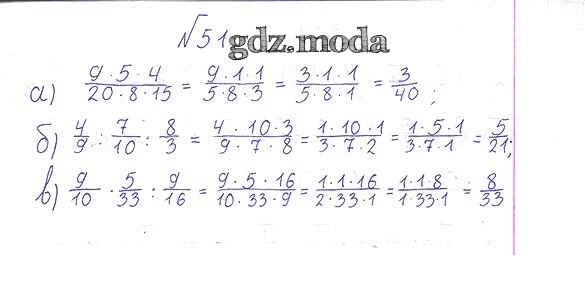 №51 gdz.moda
а) 9·5·4/20·8·15 = 9·1·1/5·8·3 = 3·1·1/5·8·1 = 3/40;
б) 4/9 : 7/10 : 8/3 = 4·10·3/9·7·8 = 1·10·1/3·7·2 = 1·5·1/3·7·1 = 5/21;
в) 9/10 · 5/33 : 9/16 = 9·5·16/10·33·9 = 1·1·16/2·33·1 = 1·1·8/1·33·1 = 8/33